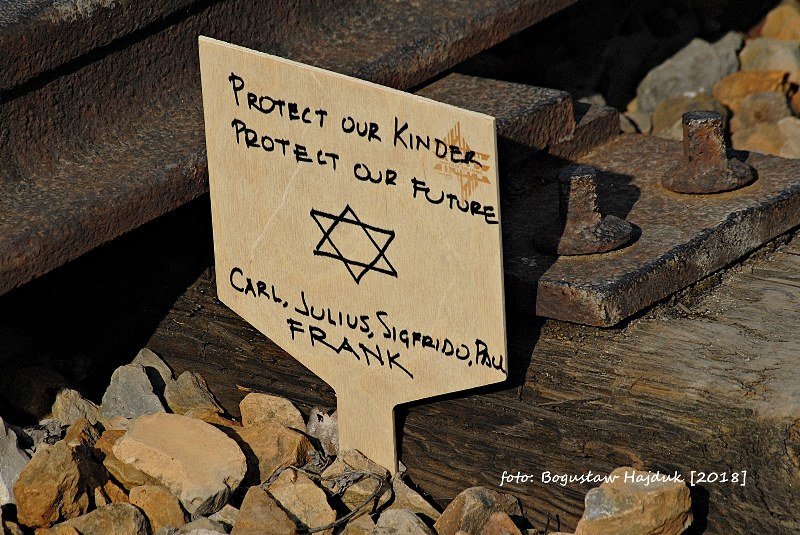 PROTECT OUR KINDER
PROTECT OUR FUTURE
CARL, JULIUS, SIGFRIDO, PAUL
FRANK
foto: Bogusław Hajduk [2018]